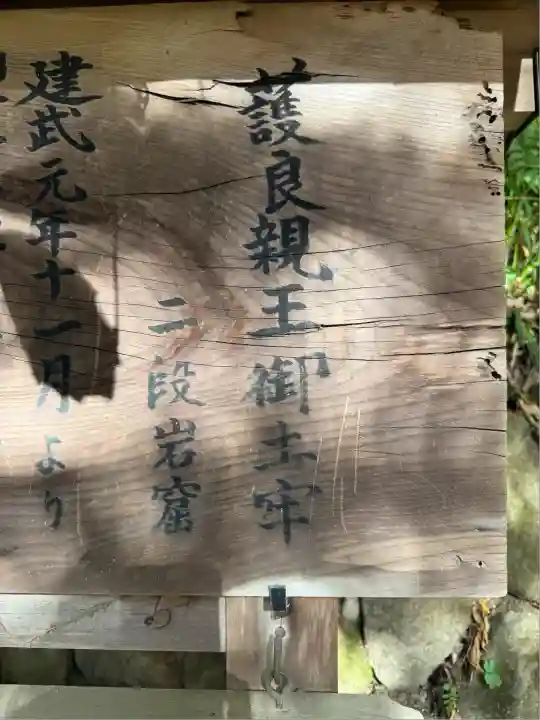 護良親王御土牢
二段岩窟
建武元年十一月より